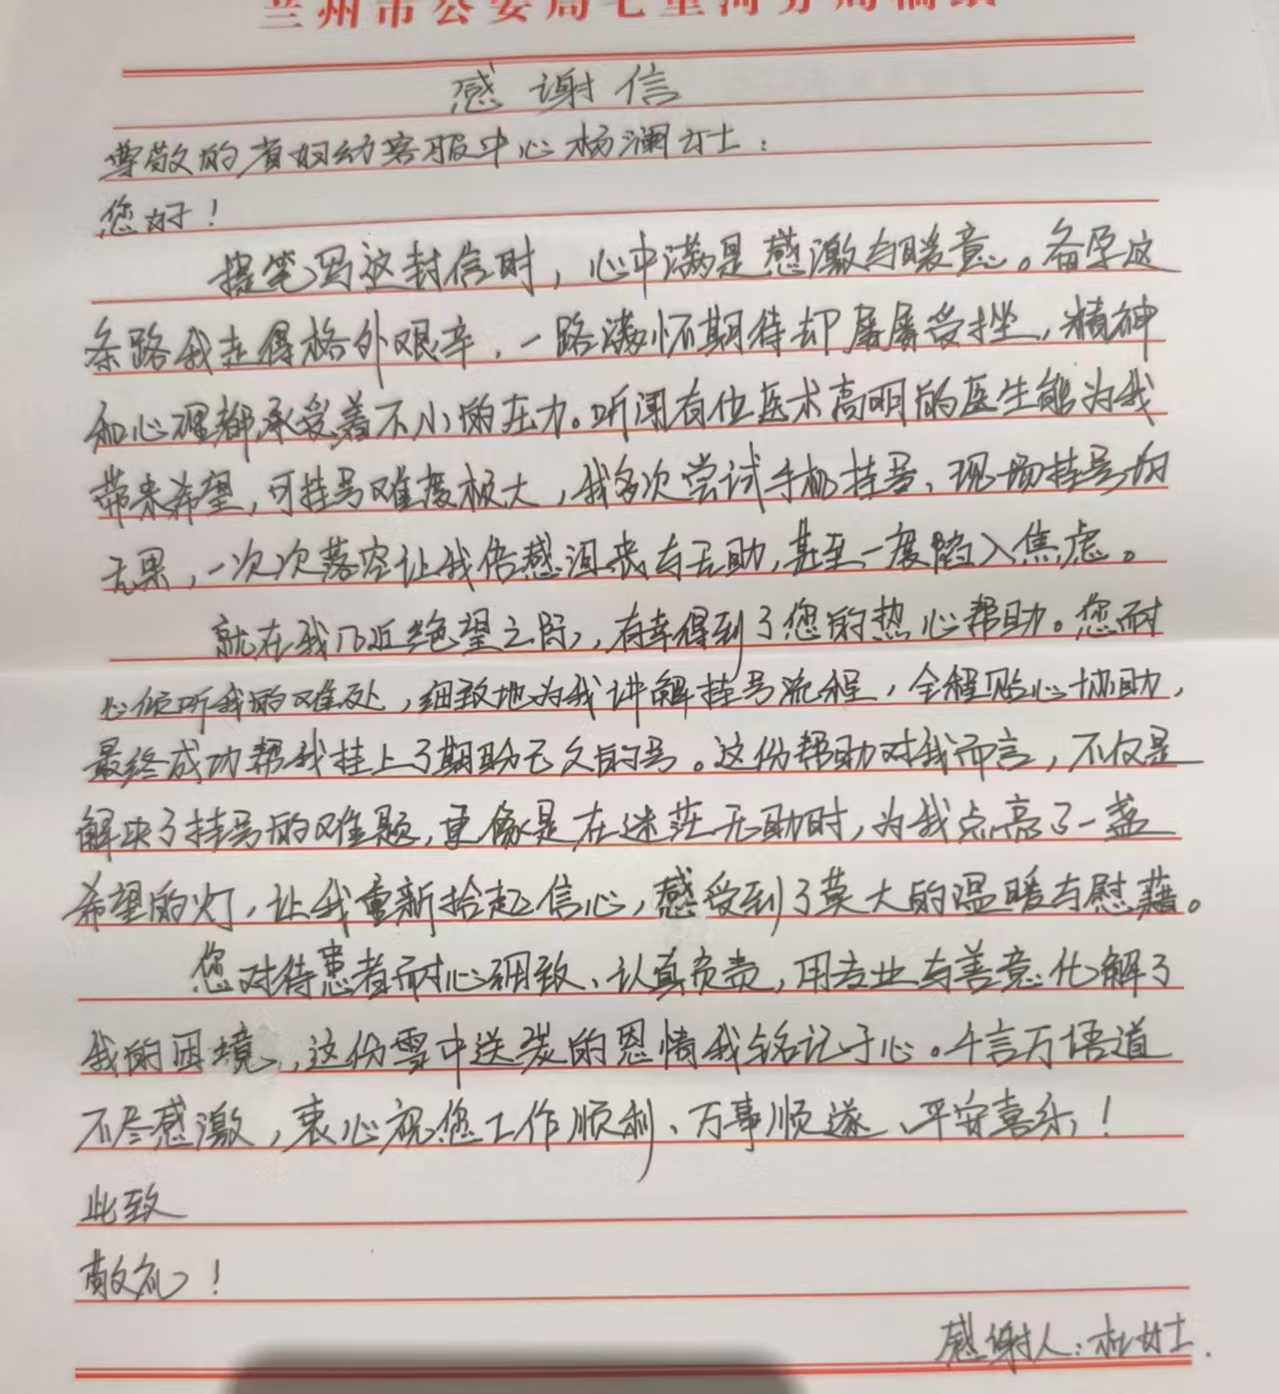 兰州市公安局七里河分局稿纸
感谢信
尊敬的省妇幼客服中心杨澜女士：
您好！
提笔写这封信时，心中满是感激与暖意。备孕这
条路我走得格外艰辛，一路满怀期待却屡屡受挫，精神
和心理都承受着不小的压力。听闻有位医术高明的医生能为我
带来希望，可挂号难度极大，我多次尝试手机挂号、现场挂号均
无果，一次次落空让我倍感沮丧与无助，甚至一度陷入焦虑。
就在我几近绝望之际，有幸得到了您的热心帮助。您耐
心倾听我的难处，细致地为我讲解挂号流程，全程贴心协助，
最终成功帮我挂上了期盼已久的号。这份帮助对我而言，不仅是
解决了挂号的难题，更像是在迷茫无助时，为我点亮了一盏
希望的灯，让我重新拾起信心，感受到了莫大的温暖与慰藉。
您对待患者耐心细致、认真负责，用专业与善意化解了
我的困境，这份雪中送炭的恩情我铭记于心。千言万语道
不尽感激，衷心祝您工作顺利、万事顺遂、平安喜乐！
此致
敬礼！
感谢人：杜女士.